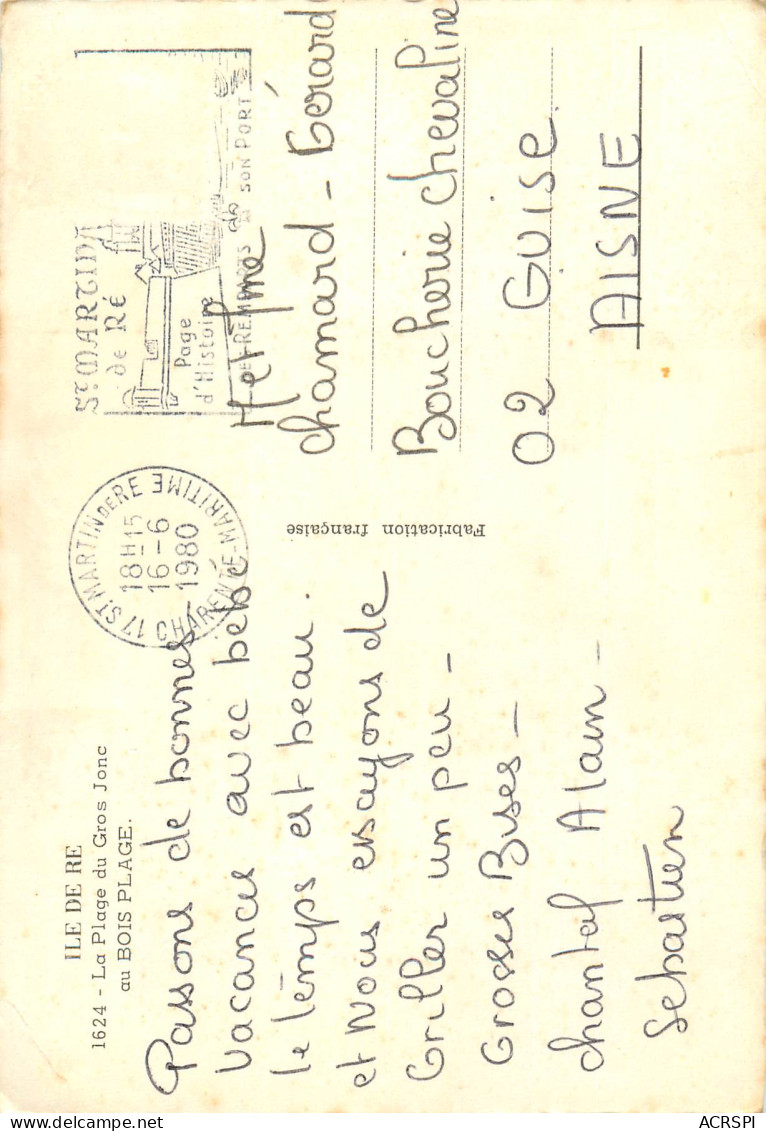 ILE DE RE
1624 - La Plage du Gros Jonc
au BOIS PLAGE.
Passons de bonnes
vacances avec bébé
le temps est beau.
et Nous essayons de
Griller un peu -
Grosses Bises -
chantal Alain -
Sébastien
Fabrication française
17 ST MARTIN DE RE
18H15
16-6
1980
CHARENTE-MARITIME
ST MARTIN
de RÉ
Page
d'Histoire
REMPARTS
SON PORT
M et Mme
chamard - Gérard
Boucherie chevaline
02 GUISE
AISNE
ACRSPI